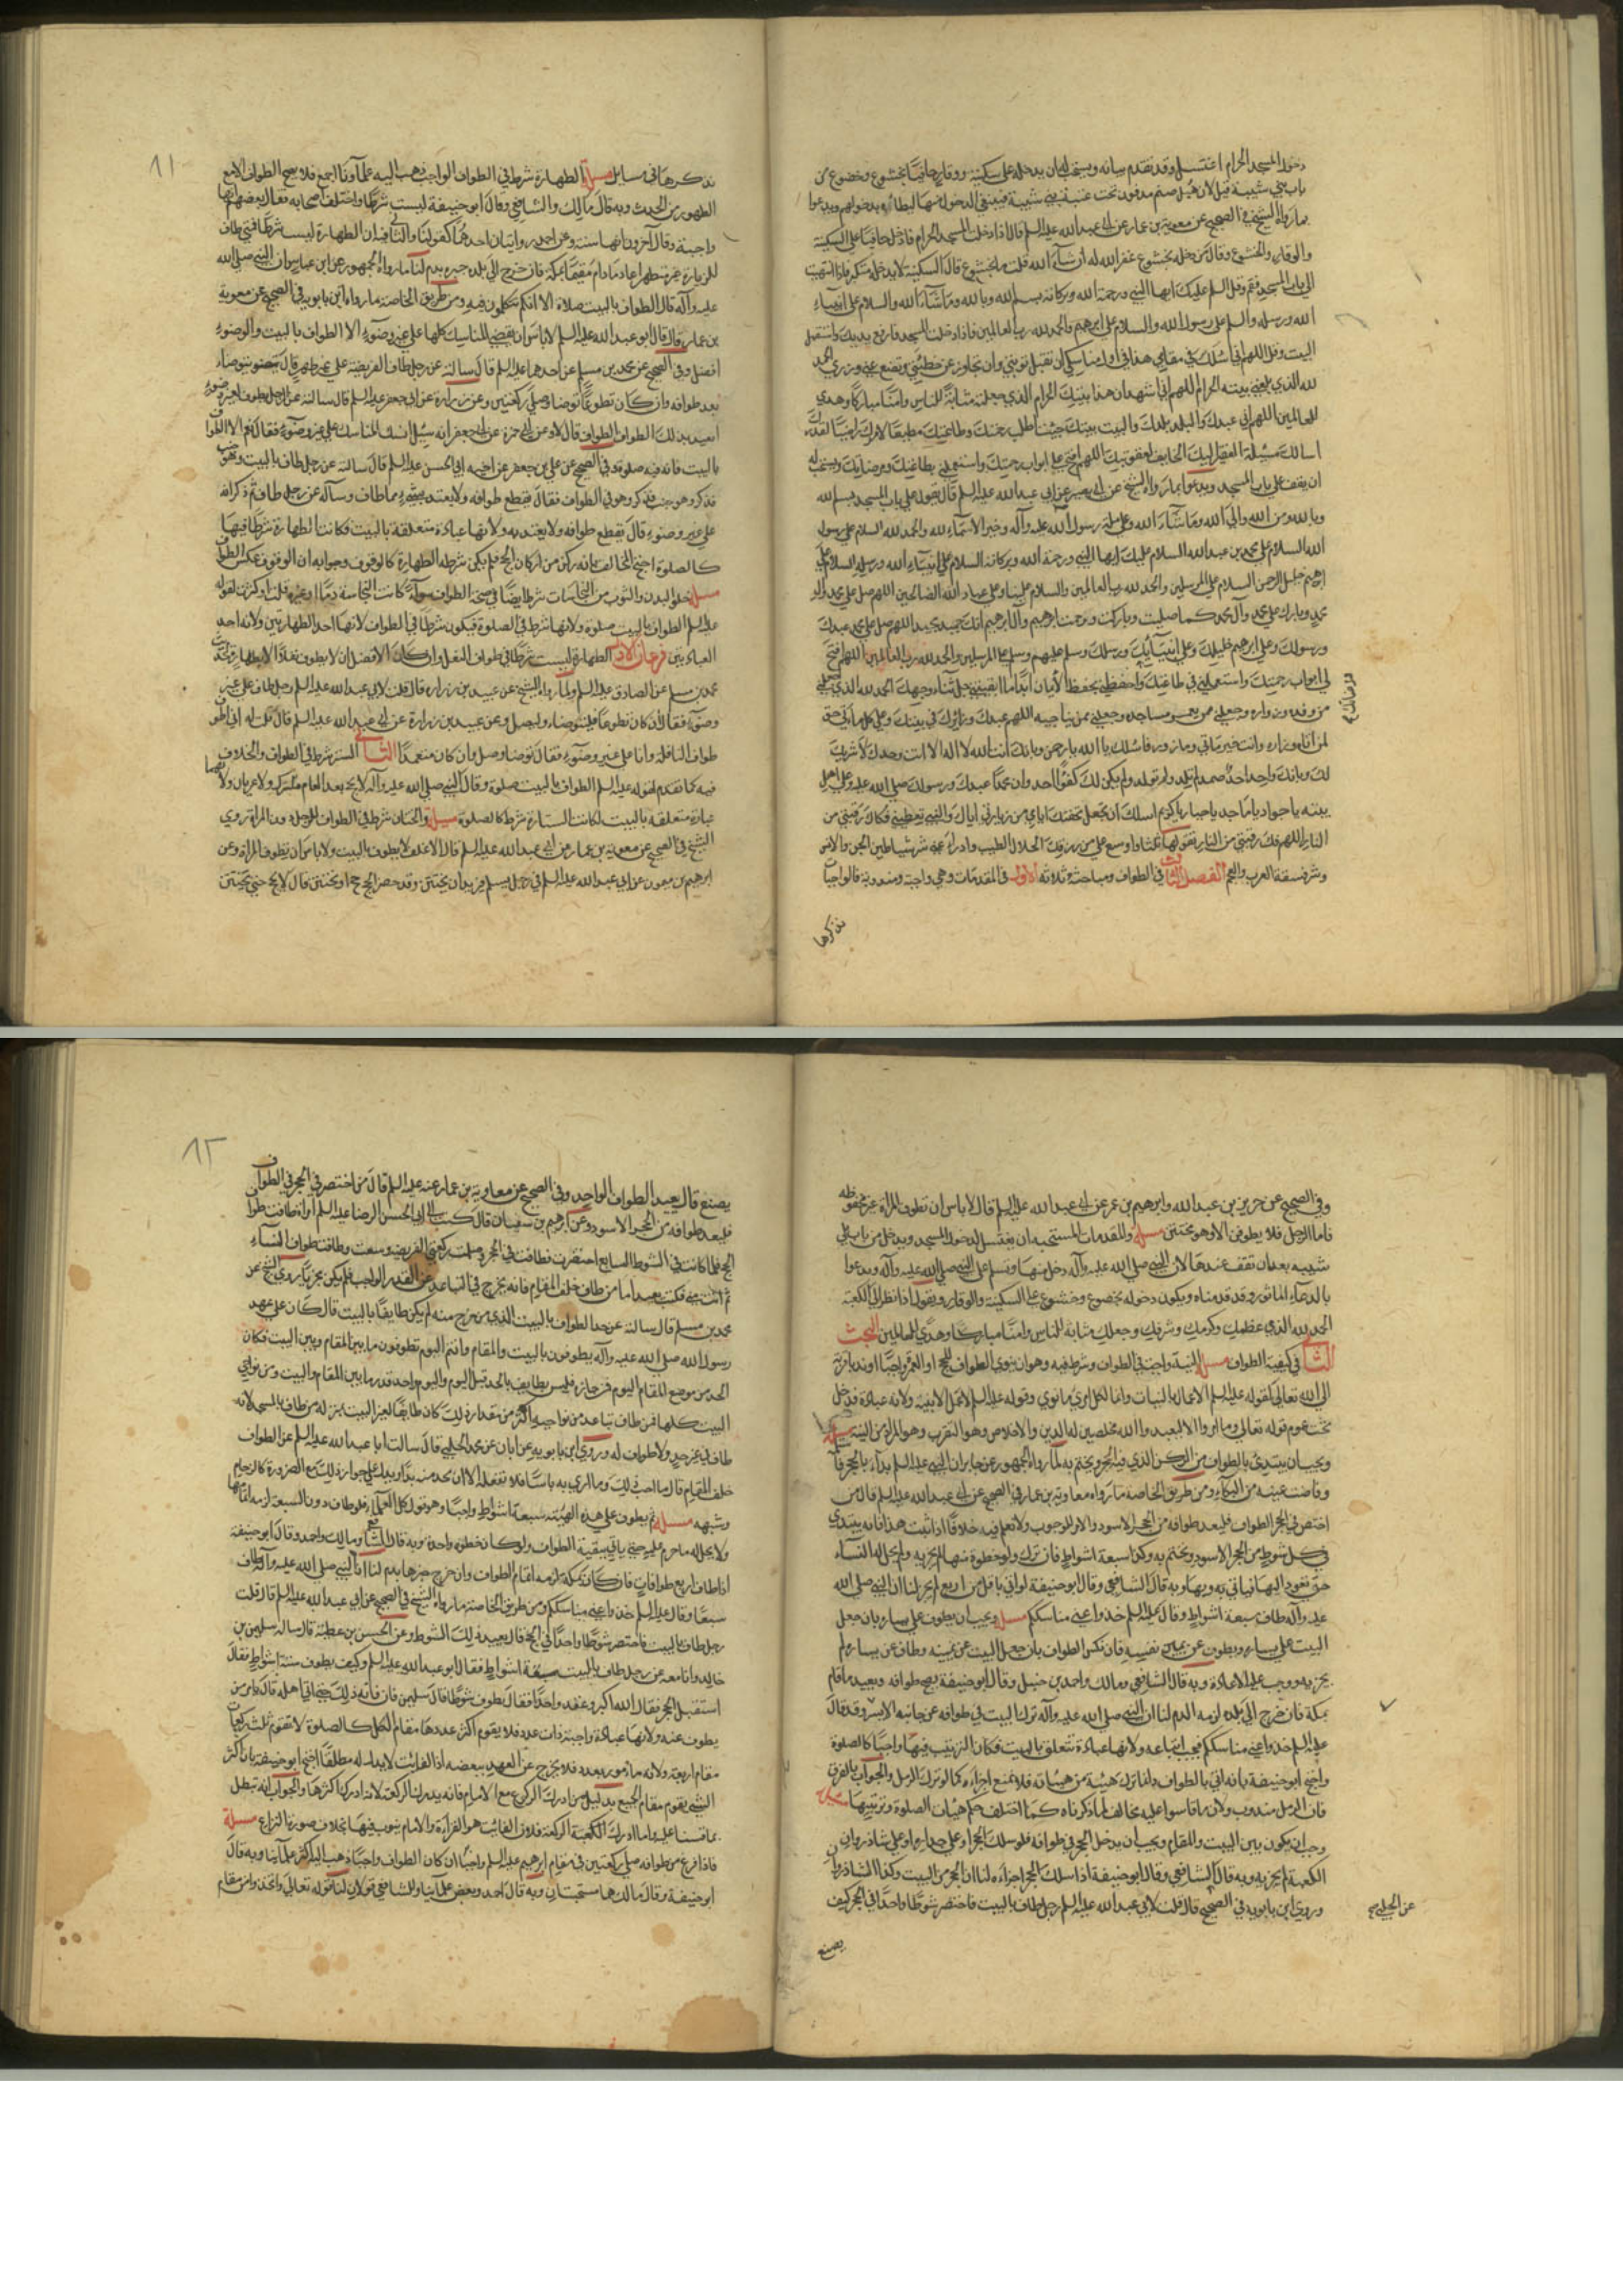 دخول المسجد الحرام اغتسل وقد تقدم بيانه ويستحب له ان يدخله على سكينة ووقار حافيا بخشوع وخضوع من
باب بني شيبة قيل لان هبل صنم مدفون تحت عتبة بني شيبة فينبغي الدخول منها ليطأوه بدخولهم ويدعوا
بما رواه الشيخ في الصحيح عن معوية بن عمار عن ابي عبد الله عليه السلم قال اذا دخلت المسجد الحرام فادخل حافيا على السكينة
والوقار والخشوع وقال من دخله بخشوع غفر الله له ان شآء الله قلت ما الخشوع قال السكينة لا يدخل متكبر فاذا انتهيت
الى باب المسجد فقم وقل السلم عليك ايها النبي ورحمة الله وبركاته بسم الله وبالله وما شآء الله والسلام على انبيآء
الله ورسله والسلم على رسول الله والسلام على ابرهيم والحمد لله رب العالمين فاذا دخلت المسجد فارفع يديك واستقبل
البيت وقل اللهم اني اسئلك في مقامي هذا في اول مناسكي ان تقبل توبتي وان تجاوز عن خطيئتي وتضع عني وزري الحمد
لله الذي بلغني بيته الحرام اللهم اني اشهد ان هذا بيتك الحرام الذي جعلته مثابة للناس وامنا مباركا وهدى
للعالمين اللهم اني عبدك والبلد بلدك والبيت بيتك جئت اطلب رحمتك وطاعتك مطيعا لامرك راضيا بقدرك
اسالك مسئلة الفقير اليك الخايف لعقوبتك اللهم افتح لي ابواب رحمتك واستعملني بطاعتك ومرضاتك ويستحب له
ان يقف على باب المسجد ويدعوا بما رواه الشيخ عن ابي بصير عن ابي عبد الله عليه السلم قال تقول على باب المسجد بسم الله
وبالله ومن الله والى الله وما شآء الله وعلى ملة رسول الله عليه وآله وخير الاسمآء لله والحمد لله السلام على رسول
الله السلام على محمد بن عبد الله السلام عليك ايها النبي ورحمة الله وبركاته السلام على انبيآء الله ورسله السلام على
ابرهيم خليل الرحمن السلام على المرسلين والحمد لله رب العالمين والسلام علينا وعلى عباد الله الصالحين اللهم صل على محمد وآل
محمد وبارك على محمد وآل محمد كما صليت وباركت وترحمت على ابرهيم وآل ابرهيم انك حميد مجيد اللهم صل على محمد عبدك
ورسولك وعلى ابرهيم خليلك وعلى انبيآئك ورسلك وسلم عليهم وسلم على المرسلين والحمد لله رب العالمين اللهم افتح
لي ابواب رحمتك واستعملني في طاعتك واحفظني بحفظ الايمان ابدا ما ابقيتني جل ثناء وجهك الحمد لله الذي جعلني
من وفده وزواره وجعلني ممن يعمر مساجده وجعلني ممن يناجيه اللهم عبدك وزائرك في بيتك وعلى كل مأتي حق
لمن اتاه وزاره وانت خير مأتي ومزور فاسئلك يا الله يا رحمن وبانك انت الله لا اله الا انت وحدك لا شريك
لك وبانك واحد احد صمد لم تلد ولم تولد ولم يكن لك كفوا احد وان محمدا عبدك ورسولك صلى الله عليه وعلى اهل
بيته يا جواد يا ماجد يا جبار يا كريم اسلك ان تجعل تحفتك اياي من زيارتي اياك والشيء تعطيني فكاك رقبتي من
النار اللهم فك رقبتي من النار تقولها ثلثا واوسع علي من رزقك الحلال الطيب وادرأ عني شر شياطين الجن والانس
وشر فسقة العرب والعجم الفصل الثالث في الطواف ومباحثه ثلاثة الاول في المقدمات وهي واجبة ومندوبة فالواجبات
نذكرها
ومرضاتك صح
٨١
نذكرها في مسايل مسئلة الطهارة شرط في الطواف الواجب ذهب اليه علمآونا اجمع فلا يصح الطواف الا مع
الطهور من الحدث وبه قال مالك والشافعي وقال ابو حنيفة ليست شرطا واختلف اصحابه فقال بعضهم انها
واجبة وقال آخرون انها سنة وعن احمد روايتان احدهما كقولنا والثانية ان الطهارة ليست شرطا فمتى طاف
للزيارة غير متطهر اعاد ما دام مقيما بمكة فان خرج الى بلده جبره بدم لنا ما رواه الجمهور عن ابن عباس ان النبي صلى الله
عليه وآله قال الطواف بالبيت صلاة الا انكم تتكلمون فيه ومن طريق الخاصة ما رواه ابن بابويه في الصحيح عن معوية
بن عمار قال قال ابو عبد الله عليه السلم لا باس ان يقضي المناسك كلها على غير وضوء الا الطواف بالبيت والوضوء
افضل وفي الصحيح عن محمد بن مسلم عن احدهما عليه السلم قال سالته عن رجل طاف الفريضة على غير طهر قال يتوضا ويعيد
بعد طوافه وان كان تطوعا توضا وصلى ركعتين وعن زرارة عن ابي جعفر عليه السلم قال سالته عن الرجل يطوف بغير وضوء
ايعتد بذلك الطواف قال لا وعن ابي حمزة عن ابي جعفر انه سئل انسك المناسك على غير وضوء فقال نعم الا الطواف
بالبيت فانه فيه صلوة وفي الصحيح عن علي بن جعفر عن اخيه ابي الحسن عليه السلم قال سالته عن رجل طاف بالبيت وهو جنب
فذكر وهو في الطواف فقال يقطع طوافه ولا يعتد بشيء مما طاف وسآله عن رجل طاف ثم ذكر انه
على غير وضوء قال يقطع طوافه ولا يعتد به ولانها عبادة متعلقة بالبيت فكانت الطهارة شرطا فيها
كالصلوة احتج المخالف بانه ركن من اركان الحج فلم يكن شرطه الطهارة كالوقوف وجوابه ان الوقوف عكس الطواف
مسئلة خلو البدن والثوب من النجاسات شرط ايضا في صحة الطواف سوآء كانت النجاسة دما او غيره قلت او كثرت لقوله
عليه السلم الطواف بالبيت صلوة ولانها شرط في الصلوة فيكون شرطا في الطواف لانها احد الطهارتين ولانه احد
العبادتين فرعان الاول الطهارة ليست شرطا في طواف النفل وان كان الافضل ان لا يطوف نفلا الا بطهارة
محمد بن مسلم عن الصادق عليه السلم ولما رواه الشيخ عن عبيد بن زرارة قال قلت لابي عبد الله عليه السلم رجل طاف على غير
وضوء فقال ان كان تطوعا فليتوضاء وليصل وعن عبيد بن زرارة عن ابي عبد الله عليه السلم قال قلت له اني اطوف
طواف النافلة وانا على غير وضوء فقال توضا وصل وان كان متعمدا الثاني الستر شرط في الطواف والخلاف
فيه كما تقدم لقوله عليه السلم الطواف بالبيت صلوة وقال النبي صلى الله عليه وآله لا يحج بعد العام مشرك ولا عريان ولانها
عبادة متعلقة بالبيت فكانت الستارة شرطا كالصلوة مسئلة والختان شرط في الطواف للرجل دون المراة روى
الشيخ في الصحيح عن معوية بن عمار عن ابي عبد الله عليه السلم قال الاغلف لا يطوف بالبيت ولا باس ان تطوف المراة وعن
ابرهيم بن ميمون عن ابي عبد الله عليه السلم في رجل يسلم فيريد ان يختتن وقد حضر الحج ايحج او يختتن قال لا يحج حتى يختتن
وفي الصحيح عن حريز بن عبد الله وابرهيم بن عمر عن ابي عبد الله عليه السلم قال لا باس ان تطوف المراة غير مخفوظة
فاما الرجل فلا يطوفن الا وهو مختتن مسئلة والمقدمات المستحبة ان يغتسل لدخول المسجد ويدخل من باب بني
شيبه بعد ان تقف عندها لان النبي صلى الله عليه وآله دخل منها ويسلم على النبي صلى الله عليه وآله ويدعوا
بالدعآء الماثور وقد قدمناه ويكون دخوله بخضوع وخشوع على السكينة والوقار ويقول اذا نظر الى الكعبة
الحمد لله الذي عظمك وكرمك وشرفك وجعلك مثابة للناس وامنا مباركا وهدى للعالمين البحث
الثاني في كيفية الطواف مسئلة النية واجبة في الطواف وشرط فيه وهو ان ينوي الطواف للحج او العمرة واجبا او ندبا قربة
الى الله تعالى لقوله عليه السلم الاعمال بالنيات وانما لكل امرئ ما نوى وقوله عليه السلم لا عمل الا بنية ولانه عبادة فدخل
تحت عموم قوله تعالى وما امروا الا ليعبدوا الله مخلصين له الدين والاخلاص وهو التقرب وهو المراد من النية مسئلة
ويجب ان يبتدئ بالطواف من الركن الذي فيه الحجر ويختم به لما رواه الجمهور عن جابر ان النبي عليه السلم بدآء بالحجر فاستلمه
وفاضت عينيه من البكآء ومن طريق الخاصة ما رواه معاوية بن عمار في الصحيح عن ابي عبد الله عليه السلم قال من
اختصر في الحجر الطواف فليعد طوافه من الحجر الاسود والامر للوجوب ولا نعلم فيه خلافا اذا ثبت هذا فانه يبتدي
في كل شوط من الحجر الاسود ويختم به وهكذا سبعة اشواط فان ترك ولو خطوة منها لم يجزيه ولم يحل له النسآء
حتى تعود اليها فياتي بها وبه قال الشافعي وقال ابو حنيفة لو اتى باقل من اربع لم يجز لنا ان النبي صلى الله
عليه وآله طاف سبعة اشواط وقال عليه السلم خذوا عني مناسككم مسئلة ويجب ان يطوف على يساره بان يجعل
البيت على يساره ويطوف عن يمين نفسه فان نكس الطواف بان جعل البيت عن يمينه وطاف عن يساره لم
يجزيه ووجب عليه الاعادة وبه قال الشافعي ومالك واحمد بن حنبل وقال ابو حنيفة يصح طوافه ويعيد ما قام
بمكة فان خرج الى بلده لزمه الدم لنا ان النبي صلى الله عليه وآله ترك البيت في طوافه عن جانبه الايسر وقد قال
عليه السلم خذوا عني مناسككم فيجب اتباعه ولانها عبادة تتعلق بالبيت فكان الترتيب فيها واجبا كالصلوة
واحتج ابو حنيفة بانه اتى بالطواف وانما ترك هيئة من هيئاته فلا تمنع اجزآءه كما لو ترك الرمل والجواب بالفرق
فان الرمل مندوب ولان ما قاسوا عليه مخالف لما ذكرناه كما اختلف حكم هيئات الصلوة وترتيبها مسئلة
وجب ان يكون بين البيت والمقام ويجب ان يدخل الحجر في طوافه فلو سلك الحجر او على جداره او على شاذروان
الكعبة لم يجزيه وبه قال الشافعي وقال ابو حنيفة اذا سلك الحجر اجزآءه لنا ان الحجر من البيت وكذا الشاذروان
وروى ابن بابويه في الصحيح قال قلت لابي عبد الله عليه السلم رجل طاف بالبيت فاختصر شوطا واحدا في الحجر كيف
عن الحلبي صح
يصنع
٨٢
يصنع قال يعيد الطواف الواحد وفي الصحيح عن معاوية بن عمار عنه عليه السلم قال من اختصر في الحجر في الطواف
فليعد طوافه من الحجر الاسود وعن ابرهيم بن سفيان قال كتبت الى ابي الحسن الرضا عليه السلم امراة طافت طواف
الحج فلما كانت في الشوط السابع اختصرت فطافت في الحجر وصلت ركعتي الفريضة وسعت وطافت طواف النسآء
ثم اتت منى فكتب تعيد اما من طاف خلف المقام فانه يخرج في التباعد عن القدر الواجب فلم يكن مجزيا روى الشيخ عن
محمد بن مسلم قال سالته عن حد الطواف بالبيت الذي من خرج منه لم يكن طايفا بالبيت قال كان على عهد
رسول الله صلى الله عليه واله يطوفون بالبيت والمقام وانتم اليوم تطوفون ما بين المقام وبين البيت فكان
الحد من موضع المقام اليوم فمن جازه فليس بطايف والحد قبل اليوم واليوم واحد قدر ما بين المقام والبيت ومن نواحي
البيت كلها فمن طاف فتباعد من نواحيه اكثر من مقدار ذلك كان طايفا لغير البيت بمنزلة من طاف بالمسجد لانه
طاف في غير حد ولا طواف له وروى ابن بابويه عن ابان عن محمد الحلبي قال سالت ابا عبد الله عليه السلم عن الطواف
خلف المقام قال ما احب ذلك وما ارى به باسا فلا تفعله الا ان تجد منه بدا ويدل على جواز ذلك مع الضرورة كالزحام
وشبهه مسئلة ثم يطوف على هذه الهيئة سبعة اشواط واجبا وهو قول كل العلمآء فلو طاف دون السبعة لزمه اتمامها
ولا يحل له ما حرم عليه حتى ياتي ببقية الطواف ولو كان خطوة واحدة وبه قال الشافعي ومالك واحمد وقال ابو حنيفة
اذا طاف اربع طوافات فان كان بمكة لزمه اتمام الطواف وان خرج جبرها بدم لنا ان النبي صلى الله عليه وآله طاف
سبعا وقال عليه السلم خذوا عني مناسككم ومن طريق الخاصة ما رواه الشيخ في الصحيح عن ابي عبد الله عليه السلم قال قلت
رجل طاف بالبيت فاختصر شوطا واحدا في الحجر قال يعيد ذلك الشوط وعن الحسن بن عطية قال ساله سليمن بن
خالد وانا معه عن رجل طاف بالبيت ستة اشواط فقال ابو عبد الله عليه السلم وكيف يطوف ستة اشواط فقال
استقبل الحجر فقال الله اكبر وعقد واحدا فقال يطوف شوطا قال سليمن فان فاته ذلك حتى اتى اهله قال يامر من
يطوف عنه ولانها عبادة واجبة ذات عدد فلا يقوم اكثر عددها مقام الكل كالصلوة لا تقوم ثلث ركعات
مقام اربعة ولانه مأمور بعدد فلا يخرج عن العهدة ببعضه اذ الفائت لا بدل له مطلقا احتج ابو حنيفة بان اكثر
الشيء يقوم مقام الجميع بدليل من ادرك الركوع مع الامام فانه يدرك الركعة لانه ادرك اكثرها والجواب انه تبطل
بما قسنا عليه واما ادراك الركعة فلان الفائت هو القرآءة والامام ينوب فيها بخلاف صورة النزاع مسئلة
فاذا فرغ من طوافه صلى ركعتين في مقام ابرهيم عليه السلم واجبا ان كان الطواف واجبا ذهب اليه اكثر علمآئنا وبه قال
ابو حنيفة وقال مالك هما مستحبتان وبه قال احمد وبعض علمآئنا وللشافعي قولان لنا قوله تعالى واتخذوا من مقام